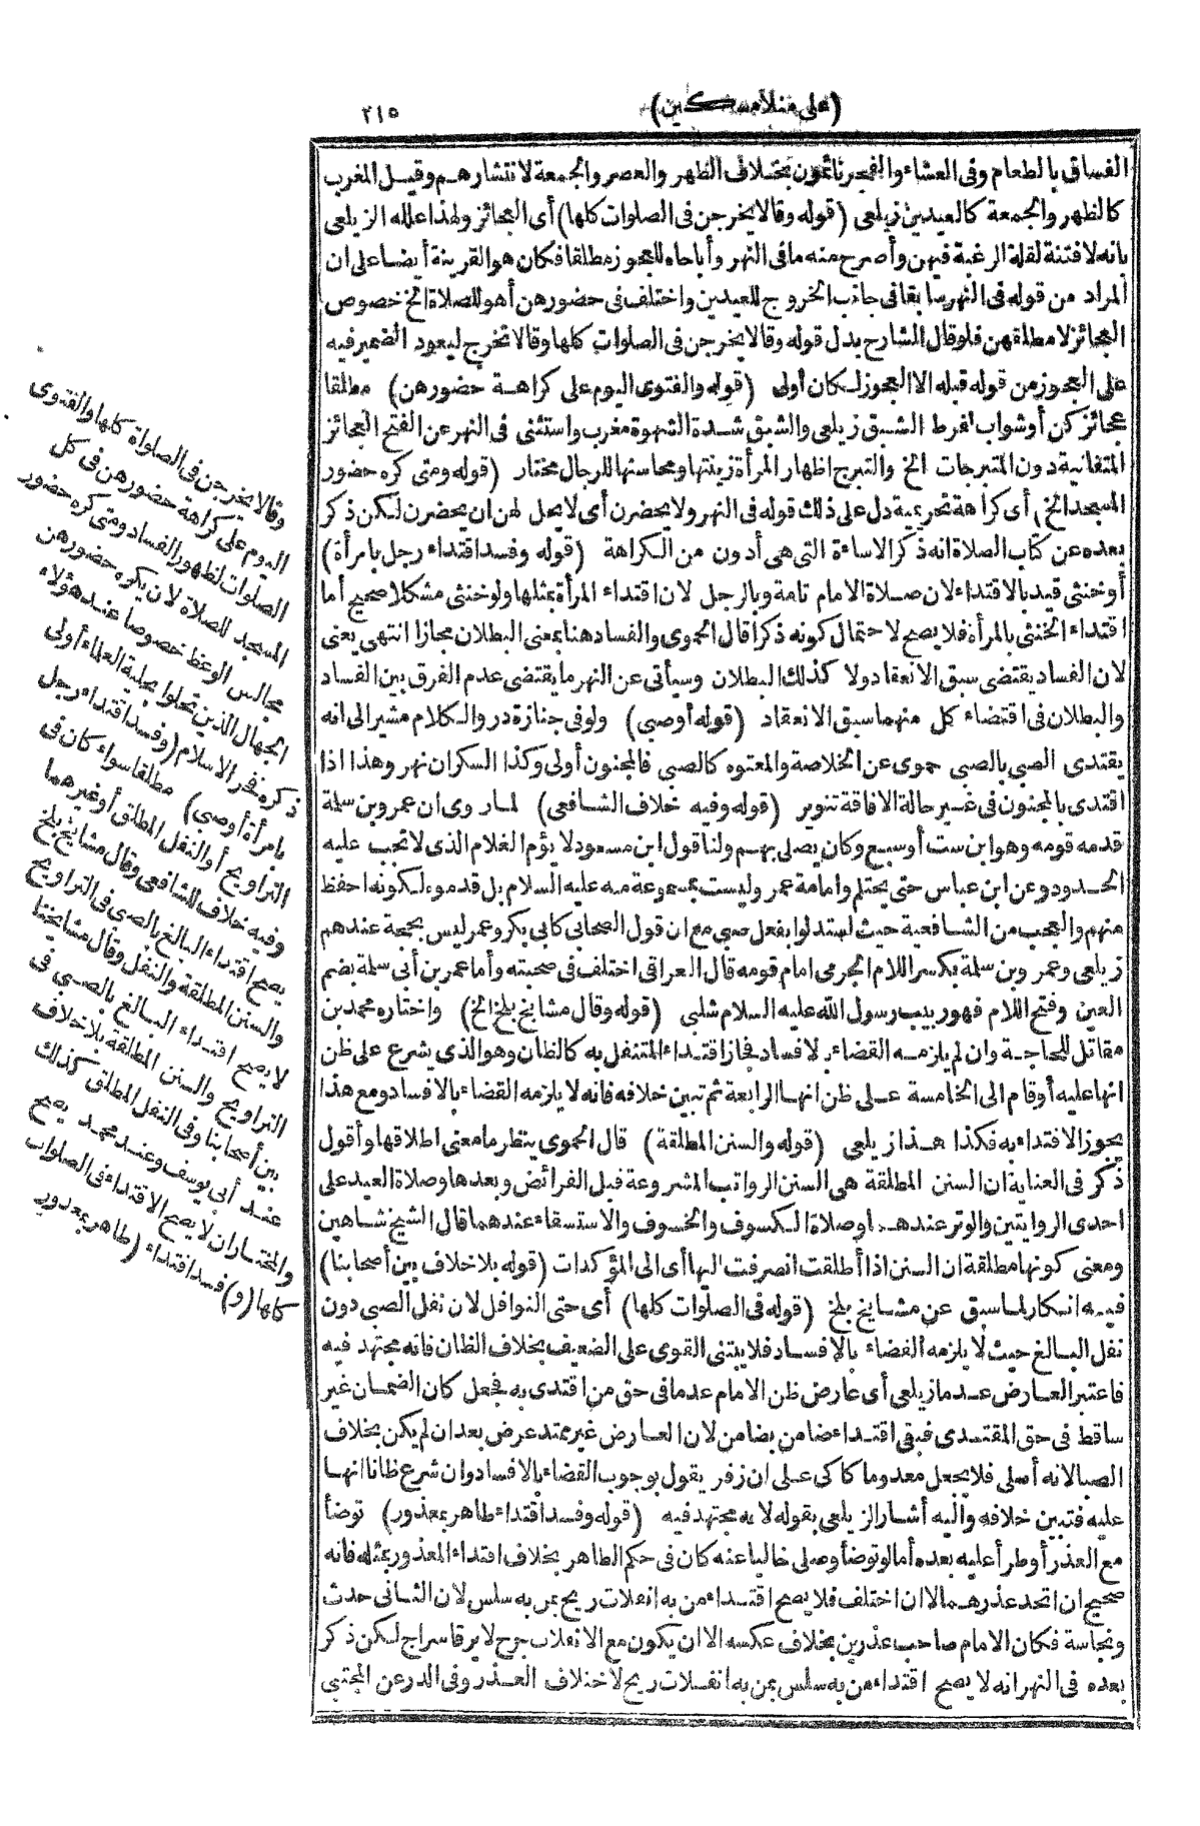 (على منلا مسكين)
٢١٥
الفساق بالطعام وفى العشاء والفجر نائمون بخلاف الظهر والعصر والجمعة لانتشارهم وقيل المغرب
كالظهر والجمعة كالعيدين زيلعى (قوله وقالا يخرجن فى الصلوات كلها) أى العجائز ولهذا علله الزيلعى
بانه لا فتنة لقلة الرغبة فيهن وأصرح منه ما فى النهر وأباحاه للعجوز مطلقا فكان هو القرينة أيضا على ان
المراد من قوله فى النهر سابقا فى جانب الخروج للعيدين واختلف فى حضورهن أهو للصلاة الخ خصوص
العجائز لا مطلقهن فلو قال الشارح بدل قوله وقالا يخرجن فى الصلوات كلها وقالا تخرج ليعود الضمير فيه
على العجوز من قوله قبله الا العجوز لكان أولى (قوله والفتوى اليوم على كراهة حضورهن) مطلقا
عجائز كن أو شواب لفرط الشبق زيلعى والشبق شدة الشهوة مغرب واستثنى فى النهر عن الفتح العجائز
المتفانية دون المتبرجات الخ والتبرج اظهار المرأة زينتها ومحاسنها للرجال مختار (قوله ومتى كره حضور
المسجد الخ) أى كراهة تحريمية دل على ذلك قوله فى النهر ولا يحضرن أى لا يحل لهن ان يحضرن لكن ذكر
بعده عن كتاب الصلاة انه ذكر الاساءة التى هى أدون من الكراهة (قوله وفسد اقتداء رجل بامرأة)
أو خنثى قيد بالاقتداء لان صلاة الامام تامة وبالرجل لان اقتداء المرأة بمثلها ولو خنثى مشكلا صحيح أما
اقتداء الخنثى بالمرأة فلا يصح لاحتمال كونه ذكرا قال الحموى والفساد هنا بمعنى البطلان مجازا انتهى يعنى
لان الفساد يقتضى سبق الانعقاد ولا كذلك البطلان وسيأتى عن النهر ما يقتضى عدم الفرق بين الفساد
والبطلان فى اقتضاء كل منهما سبق الانعقاد (قوله أو صبى) ولو فى جنازة در والكلام مشير الى انه
يقتدى الصبى بالصبى حموى عن الخلاصة والمعتوه كالصبى فالمجنون أولى وكذا السكران نهر وهذا اذا
اقتدى بالمجنون فى غير حالة الافاقة تنوير (قوله وفيه خلاف الشافعى) لما روى ان عمرو بن سلمة
قدمه قومه وهو ابن ست أو سبع وكان يصلى بهم ولنا قول ابن مسعود لا يؤم الغلام الذى لا تجب عليه
الحدود وعن ابن عباس حتى يحتلم وامامة عمر وليست بمسموعة منه عليه السلام بل قدموه لكونه احفظ
منهم والعجب من الشافعية حيث استدلوا بفعل صبى مع ان قول الصحابى كابى بكر وعمر ليس بحجة عندهم
زيلعى وعمر وبن سلمة بكسر اللام الجرمى امام قومه قال العراقى اختلف فى صحبته وأما عمر بن أبى سلمة بضم
العين وفتح اللام فهو ربيب رسول الله عليه السلام شلبى (قوله وقال مشايخ بلخ الخ) واختاره محمد بن
مقاتل للحاجة وان لم يلزمه القضاء بالافساد فجاز اقتداء المتنفل به كالظان وهو الذى يشرع على ظن
انها عليه أو قام الى الخامسة على ظن انها الرابعة ثم تبين خلافه فانه لا يلزمه القضاء بالافساد ومع هذا
يجوز الاقتداء به فكذا هذا زيلعى (قوله والسنن المطلقة) قال الحموى ينظر ما معنى اطلاقها وأقول
ذكر فى العناية ان السنن المطلقة هى السنن الرواتب المشروعة قبل الفرائض وبعدها وصلاة العيد على
احدى الروايتين والوتر عندهما وصلاة الكسوف والخسوف والاستسقاء عندهما قال الشيخ شاهين
ومعنى كونها مطلقة ان السنن اذا أطلقت انصرفت اليها أى الى المؤكدات (قوله بلا خلاف بين أصحابنا)
فيه انكار لما سبق عن مشايخ بلخ (قوله فى الصلوات كلها) أى حتى النوافل لان نفل الصبى دون
نفل البالغ حيث لا يلزمه القضاء بالافساد فلا يبتنى القوى على الضعيف بخلاف الظان فانه مجتهد فيه
فاعتبر العارض عدما زيلعى أى عارض ظن الامام عدما فى حق من اقتدى به فجعل كان الضمان غير
ساقط فى حق المقتدى فبقى اقتداء ضامن بضامن لان العارض غير ممتد عرض بعد ان لم يكن بخلاف
الصبا لانه أصلى فلا يجعل معدوما كاكى على ان زفر يقول بوجوب القضاء بالافساد وان شرع ظانا انها
عليه فتبين خلافه واليه أشار الزيلعى بقوله لانه مجتهد فيه (قوله وفسد اقتداء طاهر بمعذور) توضأ
مع العذر أو طرأ عليه بعده أما لو توضأ وصلى خاليا عنه كان فى حكم الطاهر بخلاف اقتداء المعذور بمثله فانه
صحيح ان اتحد عذرهما لا ان اختلف فلا يصح اقتداء من به انفلات ريح بمن به سلس لان الثانى حدث
ونجاسة فكان الامام صاحب عذرين بخلاف عكسه الا ان يكون مع الانفلات جرح لا يرقا سراج لكن ذكر
بعده فى النهر انه لا يصح اقتداء من به سلس بمن به انفلات ريح لاختلاف العذر وفى الدر عن المجتبى
وقالا يخرجن فى الصلواة كلها والفتوى
اليوم على كراهة حضورهن فى كل
الصلوات لظهور الفساد ومتى كره حضور
المسجد للصلاة لان يكره حضورهن
مجالس الوعظ خصوصا عند هؤلاء
الجهال الذين تحلوا بحلية العلماء أولى
ذكره فخر الاسلام (وفسد اقتداء رجل
بامرأة أو صبى) مطلقا سواء كان فى
التراويح أو النفل المطلق أو غيرهما
وفيه خلاف للشافعى وقال مشايخ بلخ
يصح اقتداء البالغ بالصبى فى التراويح
والسنن المطلقة والنفل وقال مشايخنا
لا يصح اقتداء البالغ بالصبى فى
التراويح والسنن المطلقة بلا خلاف
بين أصحابنا وفى النفل المطلق كذلك
عند أبى يوسف وعند محمد يصح
والمختار ان لا يصح الاقتداء فى الصلوات
كلها (و) فسد اقتداء (طاهر بمعذور